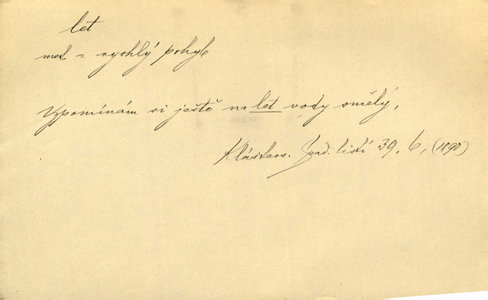 let
met. = rychlý pohyb
Vzpomínám si ještě na let vody smělý,
Klášters. Zpad. listí 39, 6, (1890)